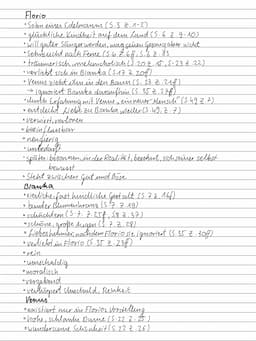 Florio
• Sohn eines Edelmanns (S. 3 Z. 1-5)
• glückliche Kindheit auf dem Land (S. 6 Z. 9-10)
• will guter Sänger werden, mag seinen Gesang aber nicht
• Sehnsucht nach Ferne
• träumerisch
• verliebt sich in Bianka (S. 17 Z. 20f)
• Venus zieht ihn in den Bann
• ignoriert Bianka daraufhin (S. 35 Z. 27f)
• dunkle Erfahrung mit Venus, ein neuer Mensch (S. 49 Z. 7)
• entdeckt Liebe zu Bianka wieder (S. 49, Z. 7)
• verwirrt, verloren
• beeinflussbar
• neugierig
• unterdrückt
• später: besonnen, in der Realität, bestärkt, sich seiner selbst
bewusst
• steht zwischen Gut und Böse
Bianka
• zierliche, fast kindliche Gestalt (S. 7 Z. 16f)
• bunter Blumenkranz (S. 7 Z. 19)
• schüchtern
• schöne, große Augen (S. 7 Z. 28)
• Liebeskummer, nachdem Florio sie ignoriert (S. 35 Z. 30ff)
• verliebt in Florio (S. 35 Z. 23ff)
• rein
• unschuldig
• moralisch
• vergebend
• verkörpert Unschuld, Reinheit
Venus
• existiert nur in Florios Vorstellung
• hohe, schlanke Dame
• wundersame Schönheit (S. 22 Z. 26)